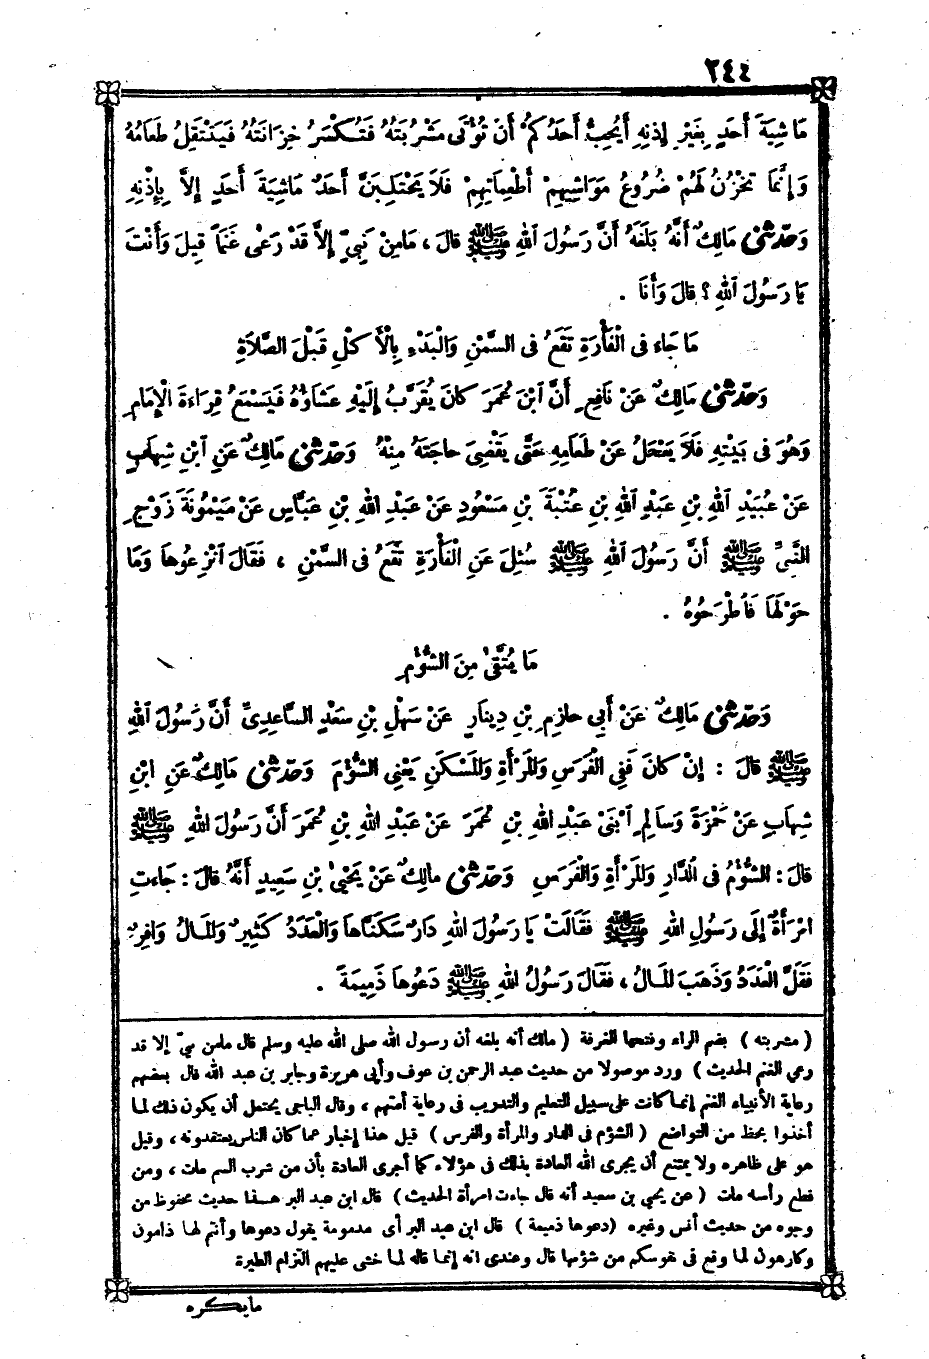 ٢٤٤
مَاشِيَةَ أَحَدٍ بِغَيْرِ إِذْنِهِ أَيُحِبُّ أَحَدُكُمْ أَنْ تُؤْتَى مَشْرُبَتُهُ فَتُكْسَرَ خِزَانَتُهُ فَيَنْتَقِلُ طَعَامُهُ
وَإِنَّمَا تَخْزُنُ لَهُمْ ضُرُوعُ مَوَاشِيهِمْ أَطْعِمَاتِهِمْ فَلَا يَحْتَلِبَنَّ أَحَدٌ مَاشِيَةَ أَحَدٍ إِلاَّ بِإِذْنِهِ
وَحَدَّثَنِي مَالِكٌ أَنَّهُ بَلَغَهُ أَنَّ رَسُولَ اللهِ ﷺ قَالَ ، مَامِنْ نَبِيٍّ إِلاَّ قَدْ رَعَى غَنَمًا قِيلَ وَأَنْتَ
يَا رَسُولَ اللهِ ؟ قَالَ وَأَنَا .
مَا جَاء فِى الْفَأْرَةِ تَقَعُ فِى السَّمْنِ وَالْبَدْءِ بِالْأَكْلِ قَبْلَ الصَّلاَةِ
وَحَدَّثَنِي مَالِكٌ عَنْ نَافِعٍ أَنَّ ابْنَ عُمَرَ كَانَ يُقَرَّبُ إِلَيْهِ عَشَاؤُهُ فَيَسْمَعُ قِرَاءَةَ الْإِمَامِ
وَهُوَ فِى بَيْتِهِ فَلَا يَعْجَلُ عَنْ طَعَامِهِ حَتَّى يَقْضِيَ حَاجَتَهُ مِنْهُ وَحَدَّثَنِي مَالِكٌ عَنِ ابْنِ شِهَابٍ
عَنْ عُبَيْدِ اللهِ بْنِ عَبْدِ اللهِ بْنِ عُتْبَةَ بْنِ مَسْعُودٍ عَنْ عَبْدِ اللهِ بْنِ عَبَّاسٍ عَنْ مَيْمُونَةَ زَوْجِ
النَّبِيِّ ﷺ أَنَّ رَسُولَ اللهِ ﷺ سُئِلَ عَنِ الْفَأْرَةِ تَقَعُ فِى السَّمْنِ ، فَقَالَ انْزِعُوهَا وَمَا
حَوْلَهَا فَاطْرَحُوهُ .
مَا يُتَّقَى مِنَ الشُّؤْمِ
وَحَدَّثَنِي مَالِكٌ عَنْ أَبِي حَازِمِ بْنِ دِينَارٍ عَنْ سَهْلِ بْنِ سَعْدٍ السَّاعِدِيِّ أَنَّ رَسُولَ اللهِ
ﷺ قَالَ : إِنْ كَانَ فَفِي الْفَرَسِ وَالْمَرْأَةِ وَالْمَسْكَنِ يَعْنِي الشُّؤْمَ وَحَدَّثَنِي مَالِكٌ عَنِ ابْنِ
شِهَابٍ عَنْ حَمْزَةَ وَسَالِمٍ ابْنَيْ عَبْدِ اللهِ بْنِ عُمَرَ عَنْ عَبْدِ اللهِ بْنِ عُمَرَ أَنَّ رَسُولَ اللهِ ﷺ
قَالَ : الشُّؤْمُ فِى الدَّارِ وَالْمَرْأَةِ وَالْفَرَسِ وَحَدَّثَنِي مَالِكٌ عَنْ يَحْيَى بْنِ سَعِيدٍ أَنَّهُ قَالَ : جَاءَتِ
امْرَأَةٌ إِلَى رَسُولِ اللهِ ﷺ فَقَالَتْ يَا رَسُولَ اللهِ دَارٌ سَكَنَّاهَا وَالْعَدَدُ كَثِيرٌ وَالْمَالُ وَافِرٌ
فَقَلَّ الْعَدَدُ وَذَهَبَ الْمَالُ ، فَقَالَ رَسُولُ اللهِ ﷺ دَعُوهَا ذَمِيمَةً .
( مشربته ) بضم الراء وفتحها الغرفة ( مالك أنه بلغه أن رسول الله صلى الله عليه وسلم قال مامن نبيّ إلا قد
رعي الغنم الحديث ) ورد موصولا من حديث عبد الرحمن بن عوف وأبى هريرة وجابر بن عبد الله قال بعضهم
رعاية الأنبياء الغنم إنما كانت على سبيل التعليم والتدريب فى رعاية أمتهم ، وقال الباجى يحتمل أن يكون ذلك لما
أخذوا بحظ من التواضع ( الشؤم فى الدار والمرأة والفرس ) قيل هذا إخبار عما كان الناس يعتقدونه ، وقيل
هو على ظاهره ولا يمتنع أن يجرى الله العادة بذلك فى هؤلاء كما أجرى العادة بأن من شرب السم مات ، ومن
قطع رأسه مات ( عن يحيى بن سعيد أنه قال جاءت امرأة الحديث ) قال ابن عبد البر هذا حديث محفوظ من
وجوه من حديث أنس وغيره (دعوها ذميمة ) قال ابن عبد البر أى مذمومة يقول دعوها وأنتم لها ذامون
وكارهون لما وقع فى نفوسكم من شؤمها قال وعندى انه إنما قاله لما خشى عليهم التزام الطيرة
مايكره